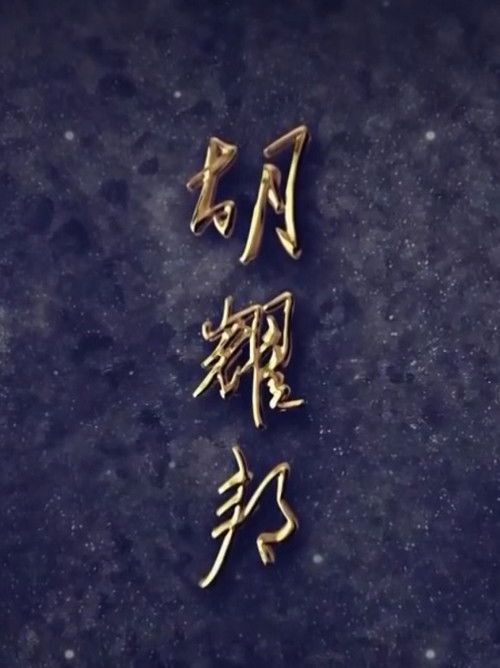 胡耀邦